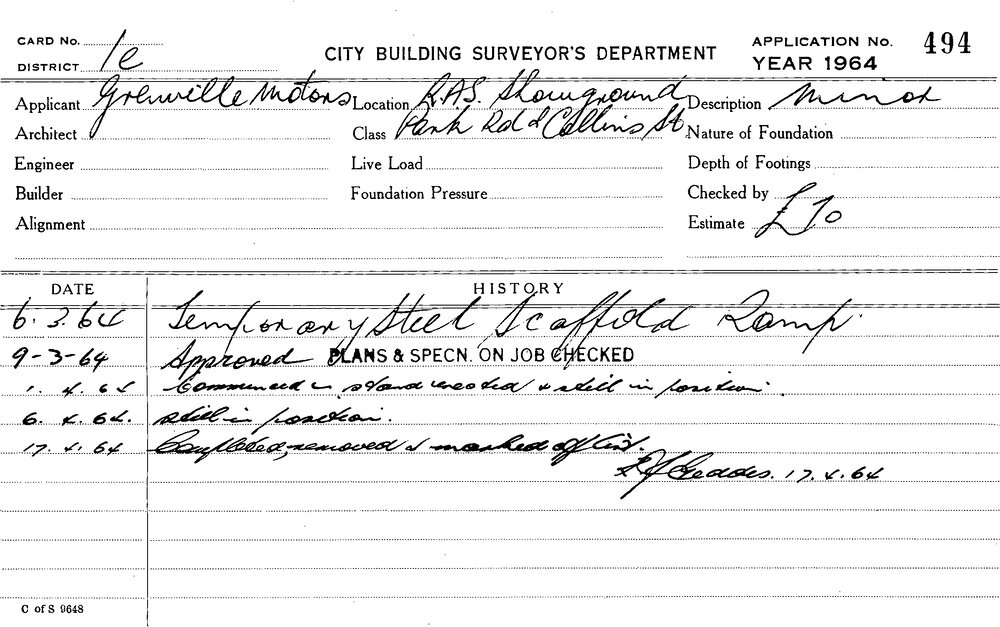 CARD No.
DISTRICT 1e
CITY BUILDING SURVEYOR'S DEPARTMENT
APPLICATION No. 494
YEAR 1964
Applicant Grenville Motors Location R.A.S. Showground Description Minor
Architect Class Park Rd & Collins St. Nature of Foundation
Engineer Live Load Depth of Footings
Builder Foundation Pressure Checked by
Alignment Estimate £70
DATE HISTORY
6.3.64 Temporary Steel Scaffold Ramp.
9-3-64 Approved PLANS & SPECN. ON JOB CHECKED
1.4.64 Commenced stand erected & still in position.
6.4.64. still in position.
17.4.64 Completed, removed & marked off list.
Geddes. 17.4.64
C of S 9648